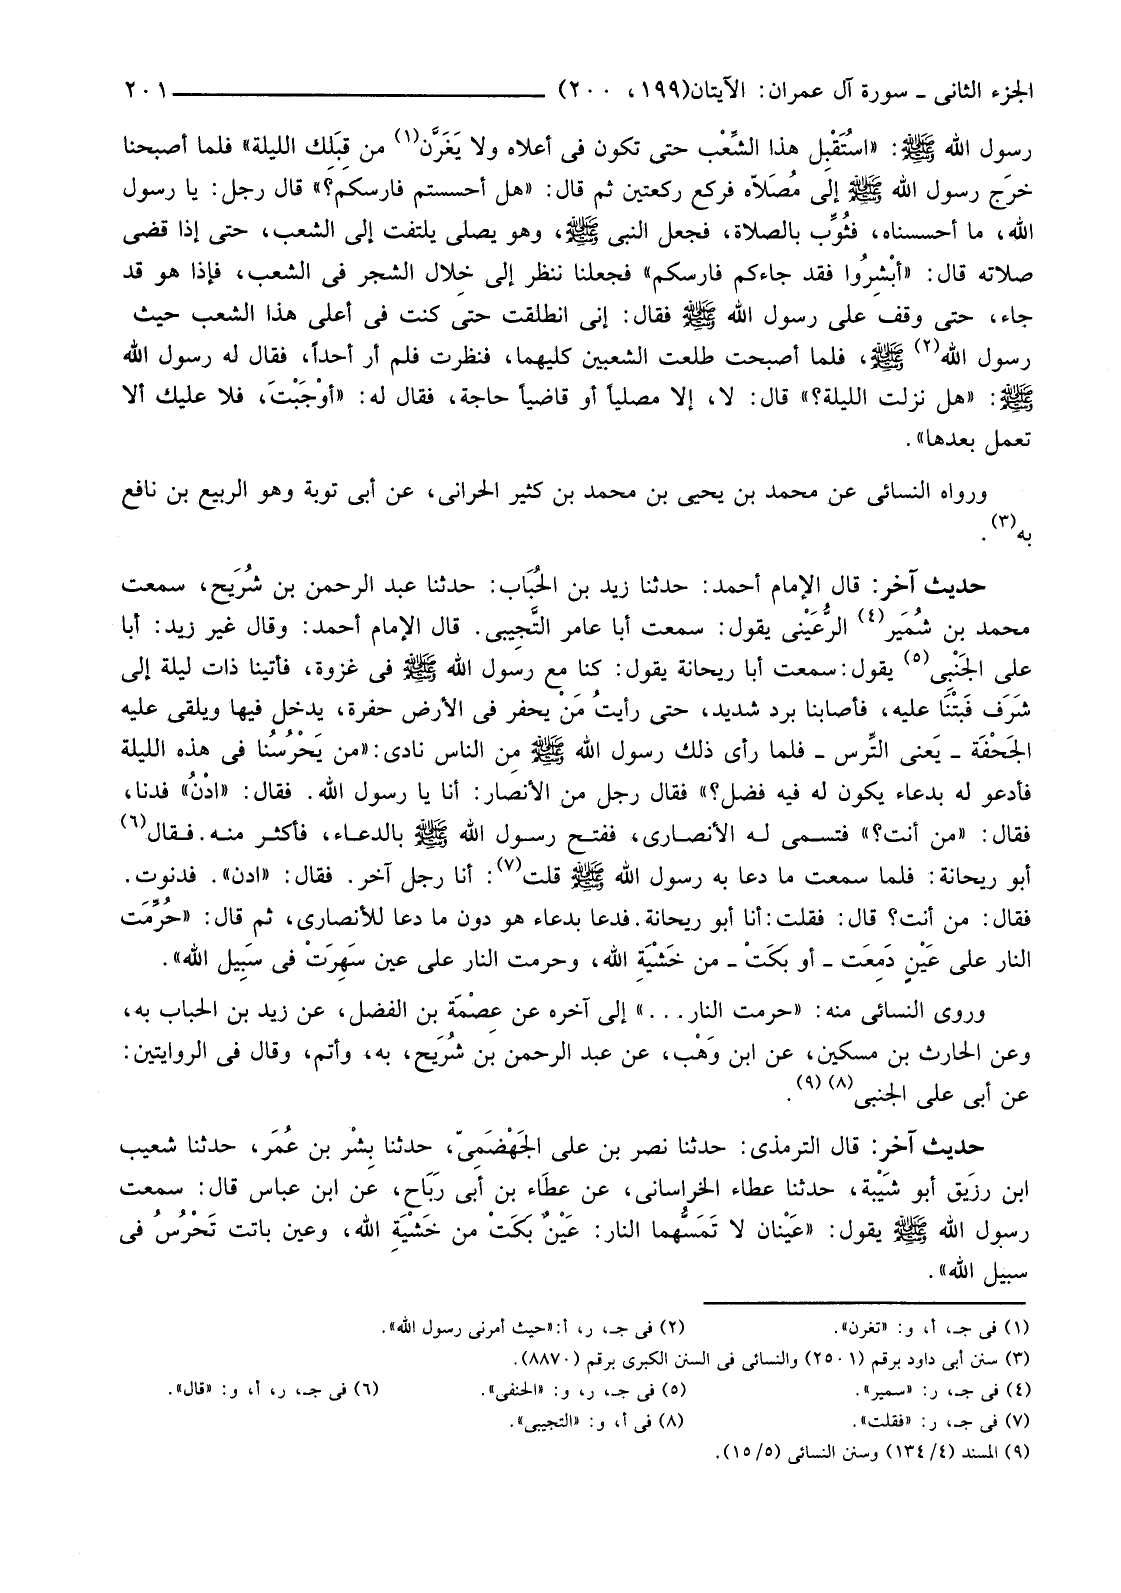 الجزء الثانى ـ سورة آل عمران: الآيتان(١٩٩، ٢٠٠) ٢٠١
رسول الله ﷺ: «استُقَبْلِ هذا الشَّعْب حتى تكون فى أعلاه ولا يَغَرَّن(١) من قِبَلِك الليلة» فلما أصبحنا
خرَج رسول الله ﷺ إلى مُصَلاّه فركع ركعتين ثم قال: «هل أحسستم فارسكم؟» قال رجل: يا رسول
الله، ما أحسسناه، فثُوِّب بالصلاة، فجعل النبى ﷺ، وهو يصلى يلتفت إلى الشعب، حتى إذا قضى
صلاته قال: «أبْشِرُوا فقد جاءكم فارسكم» فجعلنا ننظر إلى خِلال الشجر فى الشعب، فإذا هو قد
جاء، حتى وقف على رسول الله ﷺ فقال: إنى انطلقت حتى كنت فى أعلى هذا الشعب حيث
رسول الله(٢) ﷺ، فلما أصبحت طلعت الشعبين كليهما، فنظرت فلم أر أحداً، فقال له رسول الله
ﷺ: «هل نزلت الليلة؟» قال: لا، إلا مصلياً أو قاضياً حاجة، فقال له: «أوْجَبْتَ، فلا عليك ألا
تعمل بعدها».
ورواه النسائى عن محمد بن يحيى بن محمد بن كثير الحرانى، عن أبى توبة وهو الربيع بن نافع
به(٣).
حديث آخر: قال الإمام أحمد: حدثنا زيد بن الحُبَاب: حدثنا عبد الرحمن بن شُرَيح، سمعت
محمد بن شُمَير(٤) الرُّعَيْنى يقول: سمعت أبا عامر التَّجِيبى. قال الإمام أحمد: وقال غير زيد: أبا
على الجَنْبِى(٥) يقول:سمعت أبا ريحانة يقول: كنا مع رسول الله ﷺ فى غزوة، فأتينا ذات ليلة إلى
شَرَف فَبتْنَا عليه، فأصابنا برد شديد، حتى رأيتُ مَنْ يحفر فى الأرض حفرة، يدخل فيها ويلقى عليه
الجَحْفَة ـ يَعنى التِّرس ـ فلما رأى ذلك رسول الله ﷺ مِن الناس نادى:«من يَحْرُسُنا فى هذه الليلة
فأدعو له بدعاء يكون له فيه فضل؟» فقال رجل من الأنصار: أنا يا رسول الله. فقال: «ادْنُ» فدنا،
فقال: «من أنت؟» فتسمى له الأنصارى، ففتح رسول الله ﷺ بالدعاء، فأكثر منه.فقال(٦)
أبو ريحانة: فلما سمعت ما دعا به رسول الله ﷺ قلت(٧): أنا رجل آخر. فقال: «ادن». فدنوت.
فقال: من أنت؟ قال: فقلت:أنا أبو ريحانة.فدعا بدعاء هو دون ما دعا للأنصارى، ثم قال: «حُرِّمَت
النار على عَيْنٍ دَمِعَت ـ أو بَكَتْ ـ من خَشْيَةِ الله، وحرمت النار على عين سَهِرَتْ فى سَبِيل الله».
وروى النسائى منه: «حرمت النار...» إلى آخره عن عِصْمَة بن الفضل، عن زيد بن الحباب به،
وعن الحارث بن مسكين، عن ابن وَهْب، عن عبد الرحمن بن شُرَيح، به، وأتم، وقال فى الروايتين:
عن أبى على الجنبى(٨)(٩).
حديث آخر: قال الترمذى: حدثنا نصر بن على الجَهْضَمِىّ، حدثنا بِشْر بن عُمَر، حدثنا شعيب
ابن رزَيق أبو شَيْبَة، حدثنا عطاء الخراسانى، عن عطَاء بن أبى رَبَاح، عن ابن عباس قال: سمعت
رسول الله ﷺ يقول: «عَيْنان لا تَمَسُّهما النار: عَيْنٌ بَكَتْ من خَشْيَةِ الله، وعين باتت تَحْرُسُ فى
سبيل الله».
(١) فى جـ، أ، و: «تغرن». (٢) فى جـ، ر، أ:«حيث أمرنى رسول الله».
(٣) سنن أبى داود برقم (٢٥٠١) والنسائى فى السنن الكبرى برقم (٨٨٧٠).
(٤) فى جـ، ر: «سمير». (٥) فى جـ، ر، و: «الحنفى». (٦) فى جـ، ر، أ، و: «قال».
(٧) فى جـ، ر: «فقلت». (٨) فى أ، و: «التجيبى».
(٩) المسند (٤/ ١٣٤) وسنن النسائى (٥/ ١٥).